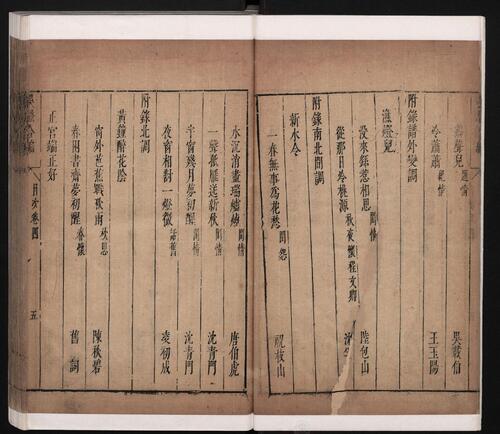 兒 題情
吳載伯
冷蕭蕭 題情
王玉陽
附錄譜外變調
漁燈兒
沒來繇惹相思 閨情
陸包山
從那日爲桃源 秋夜懷程文卿
附錄南北閏調
新水令
一春無事爲花愁 閨怨
祝枝山
水沉消畫瑞爐燒 閨情
唐伯虎
一聲孤雁送新秋 閨情
沈青門
半窗殘月夢初醒 閨情
沈青門
夜窗相對一燈微 話舊
凌初成
附錄北調
黃鐘醉花陰
窗外芭蕉戰秋雨 秋思
陳秋碧
春雨書齋夢初醒 春懷
舊詞
正宮端正好
目次卷四
五